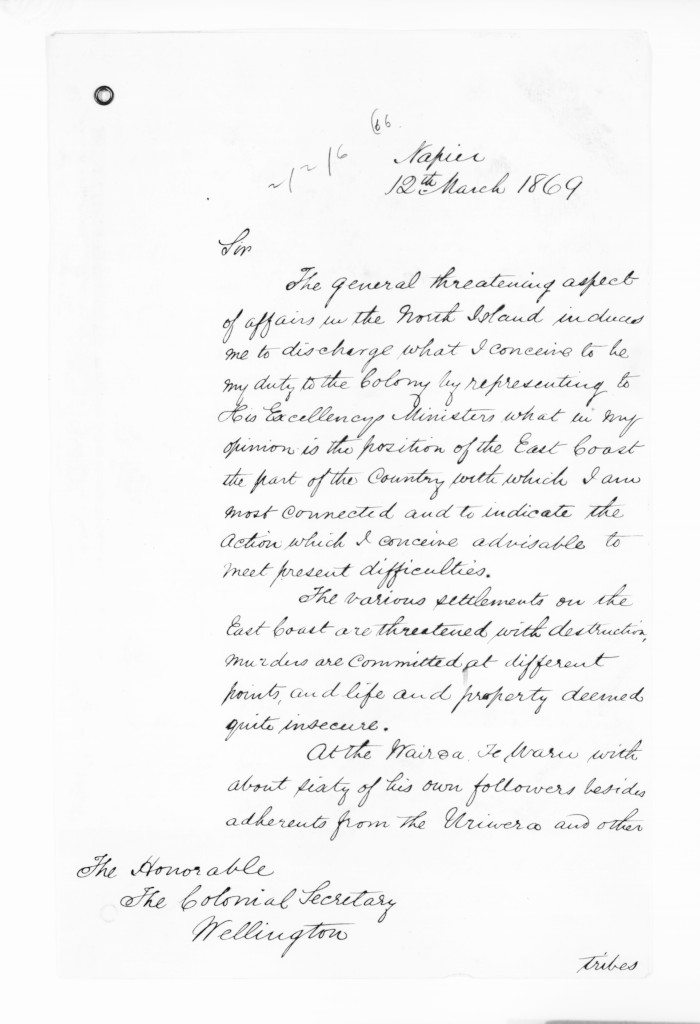 66
Napier
12th March 1869
Sir
The general threatening aspect
of affairs in the North Island induces
me to discharge what I conceive to be
my duty to the Colony by representing to
His Excellencys Ministers what in my
opinion is the position of the East Coast
the part of the Country with which I am
most connected and to indicate the
action which I conceive advisable to
meet present difficulties.
The various settlements on the
East Coast are threatened with destruction,
murders are committed at different
points, and life and property deemed
quite insecure.
At the Wairoa Te Waru with
about sixty of his own followers besides
adherents from the Uriwera and other
The Honorable
The Colonial Secretary
Wellington
tribes